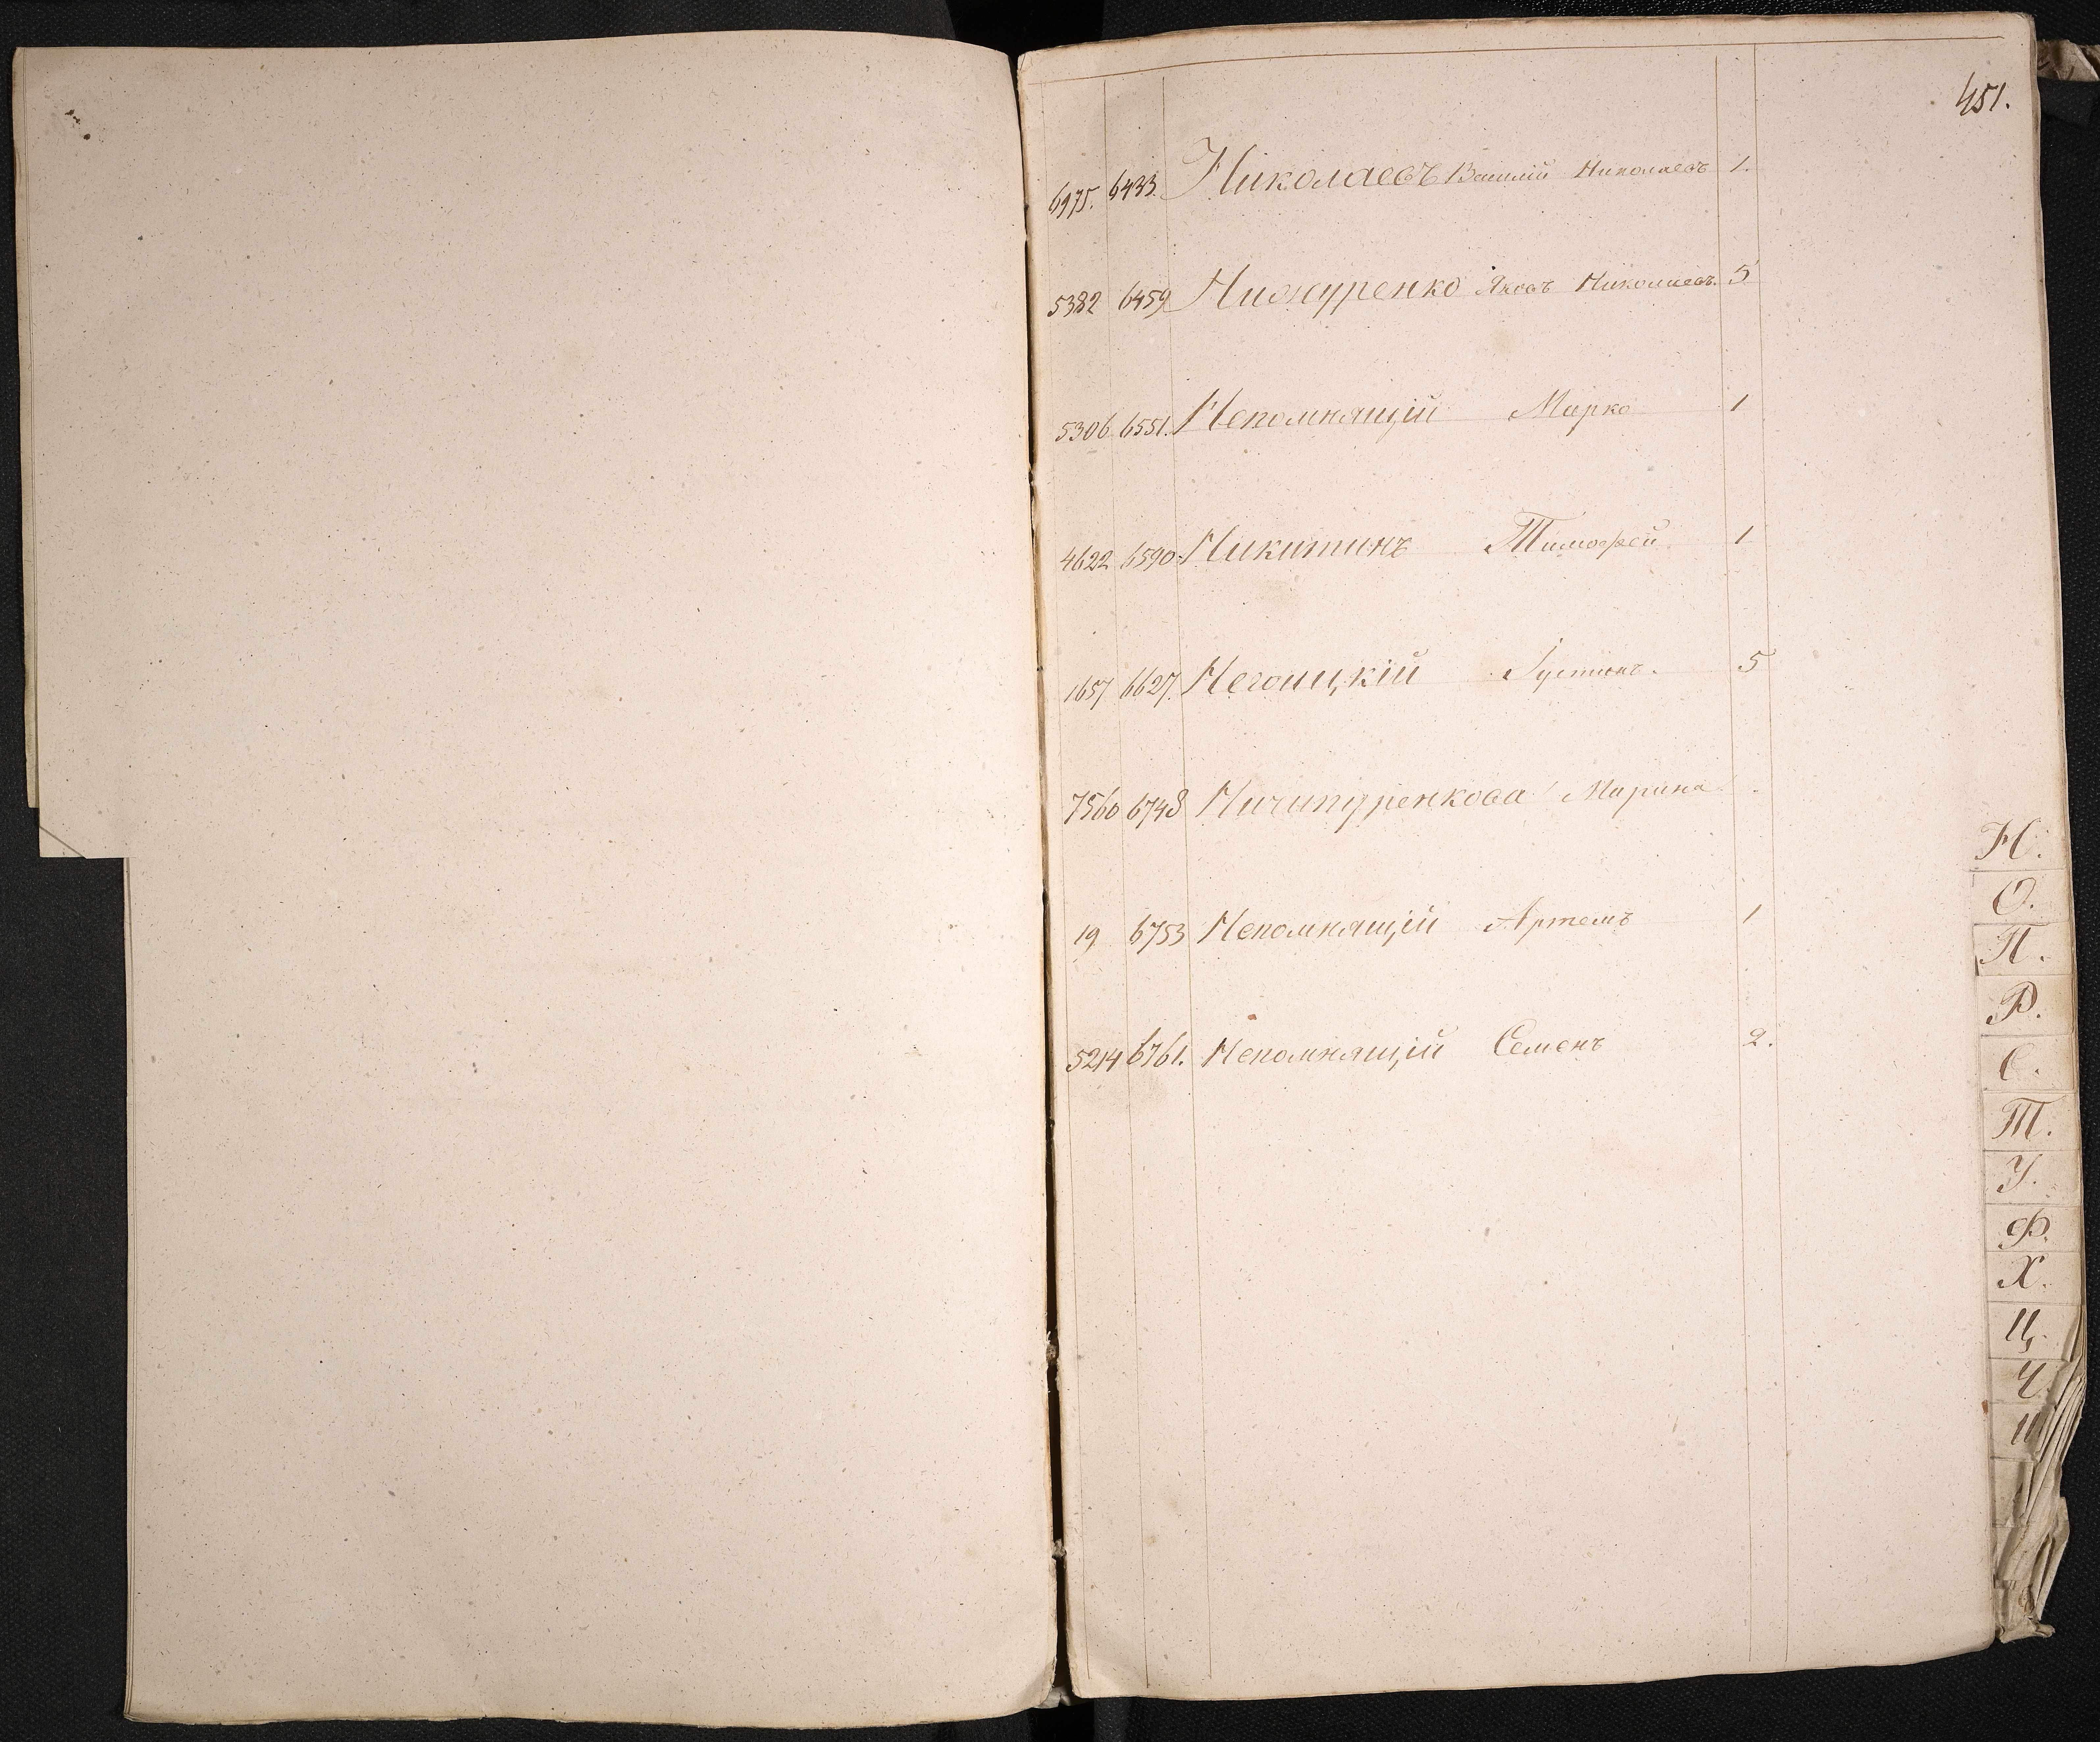 451.
6975. 6433. Николаевъ Василій Николаевъ 1.
5382 6459 Нижуренко Яковъ Николаевъ. 5
5306 6551. Непомнящій Марко 1
4622 6590. Никитинъ Тимофей 1
1657 6627. Негоицкій Іустинъ. 5
7560 6748 Ничипуренкова Марина
19 6753 Непомнящій Артемъ 1
5214 6761. Непомнящій Семенъ 2.
Н.
О.
П.
Р.
С.
Т.
У.
Ф.
Х.
Ц.
Ч.